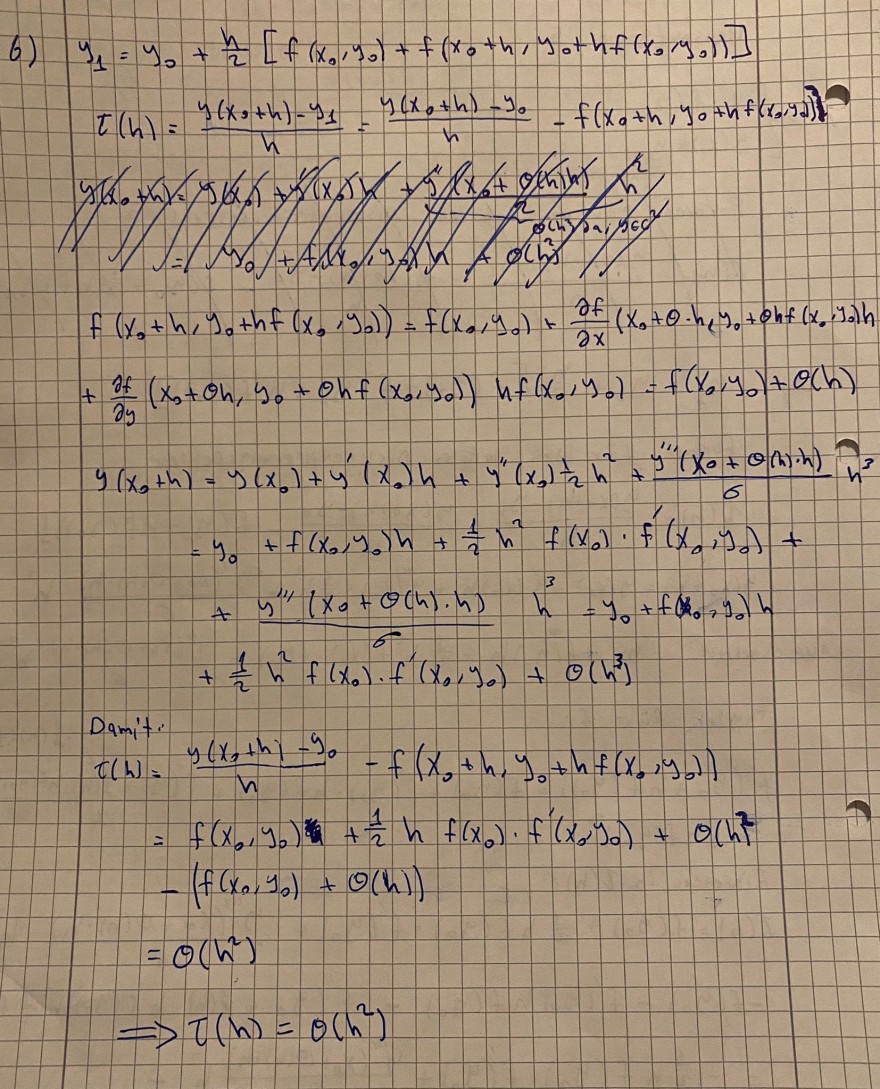 b) y₁ = y₀ + h/2 [f(x₀,y₀) + f(x₀+h, y₀+hf(x₀,y₀))]
τ(h) = (y(x₀+h) - y₁)/h = (y(x₀+h) - y₀)/h - f(x₀+h, y₀+hf(x₀,y₀))
f(x₀+h, y₀+hf(x₀,y₀)) = f(x₀,y₀) + ∂f/∂x (x₀+Θ·h, y₀+Θhf(x₀,y₀))h
+ ∂f/∂y (x₀+Θh, y₀+Θhf(x₀,y₀)) hf(x₀,y₀) = f(x₀,y₀) + O(h)
y(x₀+h) = y(x₀) + y'(x₀)h + y''(x₀) 1/2 h² + y'''(x₀+Θ(h)·h)/6 h³
= y₀ + f(x₀,y₀)h + 1/2 h² f(x₀)·f'(x₀,y₀) +
+ y'''(x₀+Θ(h)·h)/6 h³ = y₀ + f(x₀,y₀)h
+ 1/2 h² f(x₀)·f'(x₀,y₀) + O(h³)
Damit:
τ(h) = (y(x₀+h) - y₀)/h - f(x₀+h, y₀+hf(x₀,y₀))
= f(x₀,y₀) + 1/2 h f(x₀)·f'(x₀,y₀) + O(h²)
- (f(x₀,y₀) + O(h))
= O(h²)
⟹ τ(h) = O(h²)